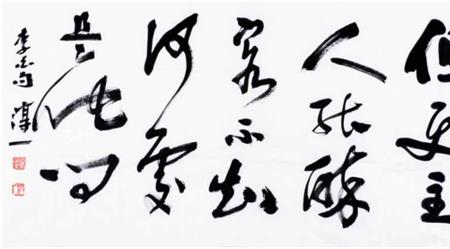 但使主
人能醉
客不知
何處
是他鄉
李白句